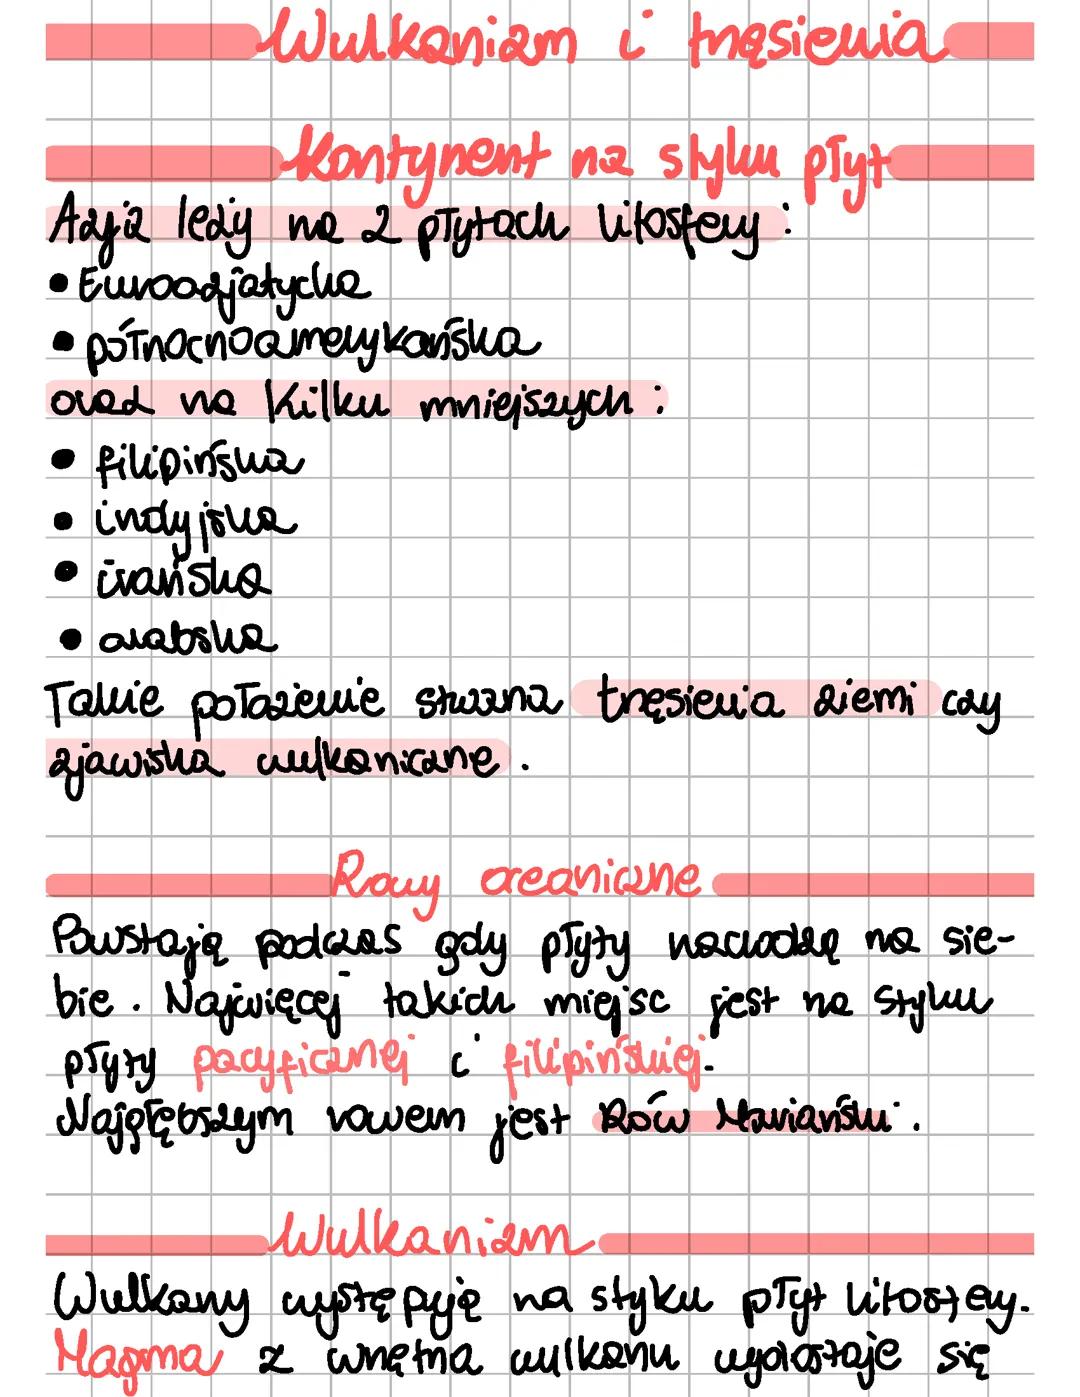 Wulkanizm i trzęsienia
Kontynent na styku płyt
Azja leży na 2 płytach litosfery :
• Euroazjatycka
• północnoamerykańska
oraz na kilku mniejszych :
• filipińska
• indyjska
• irańska
• arabska
Takie położenie stwarza trzęsienia ziemi czy
zjawiska wulkaniczne .
Rowy oceaniczne
Powstają podczas gdy płyty nachodzą na sie-
bie . Najwięcej takich miejsc jest na styku
płyty pacyficznej i filipińskiej.
Najgłębszym rowem jest Rów Mariański .
Wulkanizm
Wulkany występują na styku płyt litosfery.
Magma z wnętrza wulkanu wydostaje się